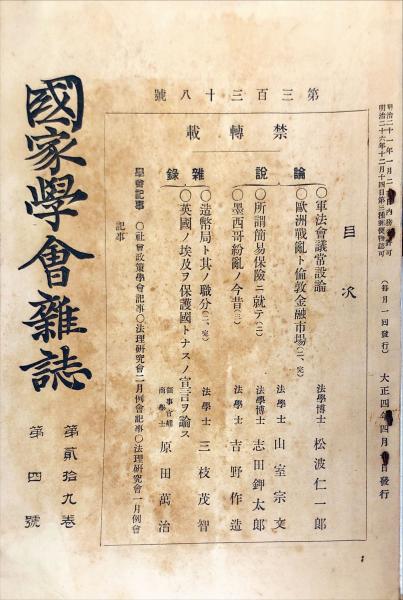 明治二十六年十二月十四日第三種郵便物認可
(每月一回發行)
大正四年四月 日發行
第三百三十八號
禁轉載
目次
論說
○軍法會議常設論
法學博士 松波仁一郎
○歐洲戰亂ト倫敦金融市場(二、完)
法學士 山室宗文
○所謂簡易保險ニ就テ(二)
法學博士 志田鉀太郎
○墨西哥紛亂ノ今昔(三)
法學士 吉野作造
雜錄
○造幣局ト其ノ職分(二、完)
法學士 三枝茂智
○英國ノ埃及ヲ保護國トナスノ宣言ヲ論ス
領事官補
商學士 原田萬治
學會記事
○社會政策學會記事○法理研究會二月例會記事○法理研究會一月例會
記事
國家學會雜誌
第貳拾九卷
第四號